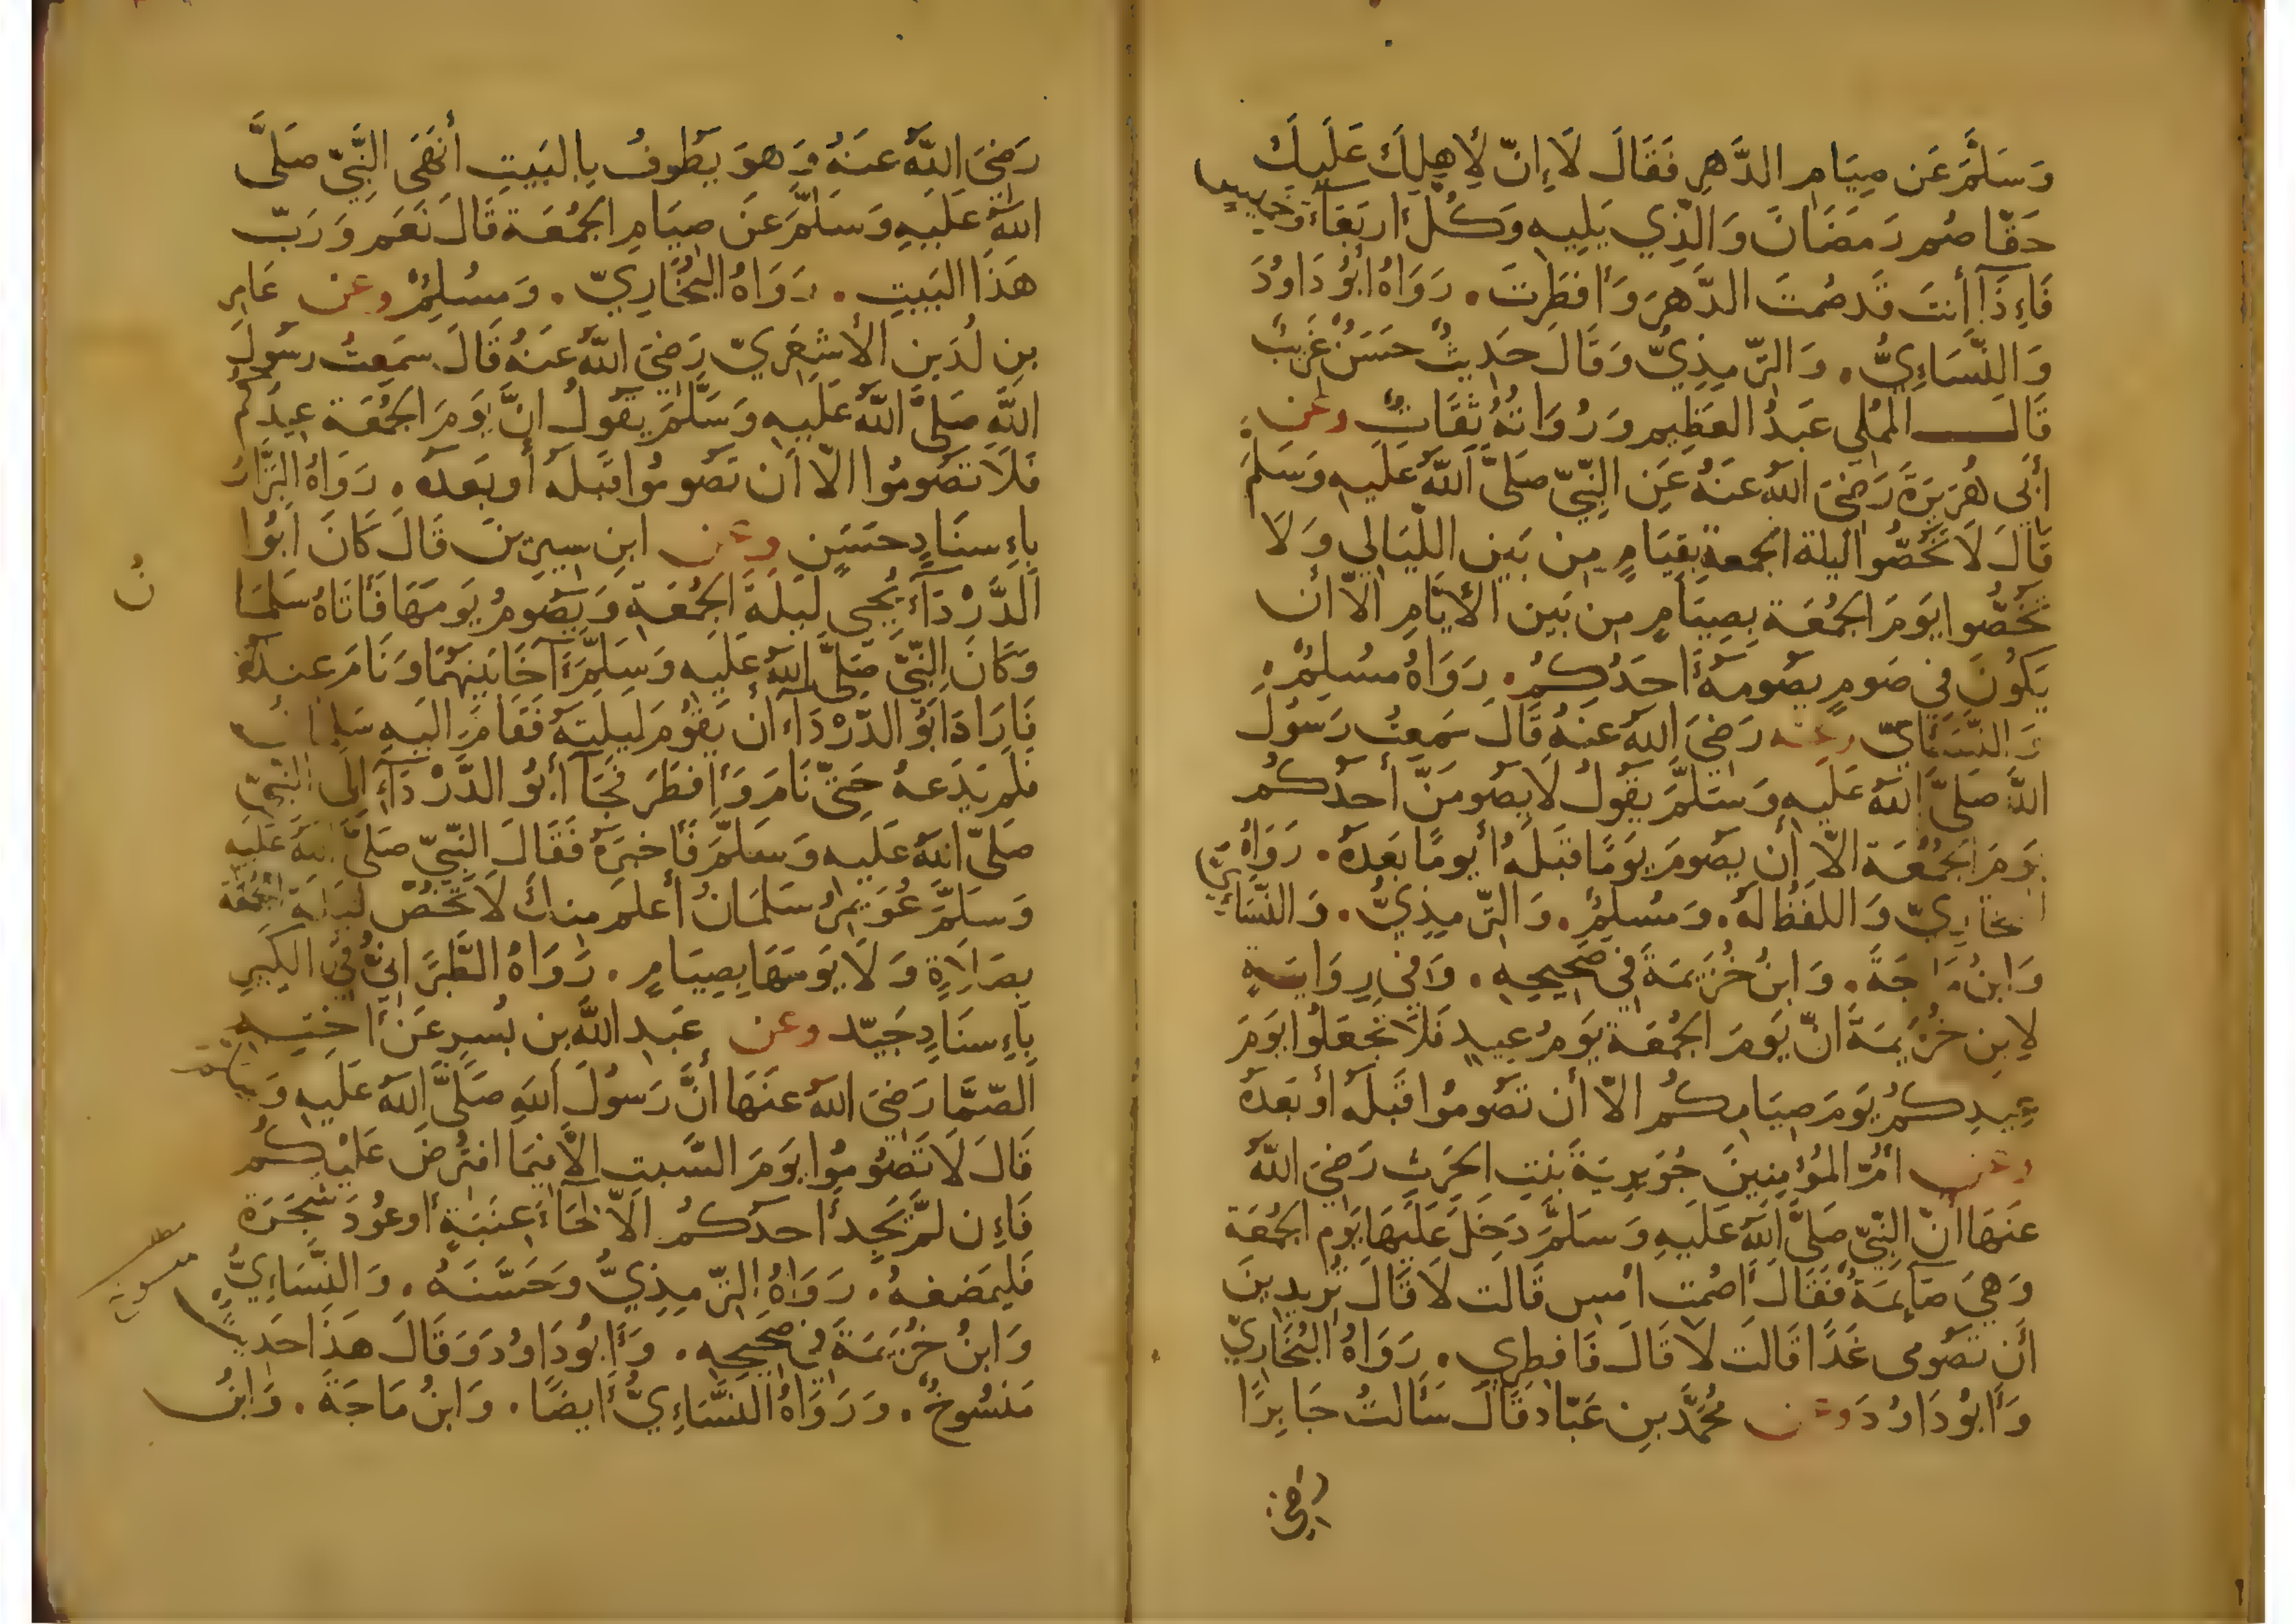 وَسَلَّمَ عَن صِيَامِ الدَّهرِ فَقَالَ لَا إِنّ لِأَهلِكَ عَلَيكَ
حَقًّا صُم رَمَضَانَ وَالَّذِي يَلِيهِ وَكُلَّ أَربَعَآءَ وَخَمِيسٍ
فَإِذًا أَنتَ قَد صُمتَ الدَّهرَ وَأَفطَرتَ . رَوَاهُ أَبُو دَاوُدَ
وَالنَّسَاءِيُّ . وَالتِّرمِذِيُّ وَقَالَ حَدِيثٌ حَسَنٌ غَرِيبٌ
قَالَ المُملِي عَبدُ العَظِيمِ وَرُوَاتُهُ ثِقَاتٌ وعن
أَبِي هُرَيرَةَ رَضِيَ اللّٰهُ عَنهُ عَنِ النَّبِيّ صَلَّى اللّٰهُ عَلَيهِ وَسَلَّمَ
قَالَ لَا تَخُصُّوا لَيلَةَ الجمعةِ بِقِيَامٍ مِن بَينِ اللَّيَالِي وَلَا
تَخُصُّوا يَومَ الجُمُعَةِ بِصِيَامٍ مِن بَينِ الأَيَّامِ إِلّا أَن
يَكُونَ فِي صَومٍ يَصُومُهُ أَحَدُكُم . رَوَاهُ مُسلِمٌ .
وَالنَّسَاءِيّ وعنه رَضِيَ اللّٰهُ عَنهُ قَالَ سَمِعتُ رَسُولَ
اللّٰهِ صَلَّى اللّٰهُ عَلَيهِ وَسَلَّمَ يَقُولُ لَا يَصُومَنَّ أَحَدُكُم
يَومَ الجُمُعَةِ إِلّا أَن يَصُومَ يَومًا قَبلَهُ أَو يومًا بَعدَهُ . رَوَاهُ
البخَارِيّ وَاللَّفظُ لَهُ . وَمُسلِمٌ . وَالتِّرمِذِيُّ . وَالنَّسَاءِيُّ
وَابنُ مَاجَةَ . وَابنُ خُزَيمَةَ فِي صَحِيحِهِ . وَفِي رِوَايَةٍ
لِابنِ خُزَيمَةَ إِنّ يَومَ الجُمُعَةِ يَومُ عِيدٍ فَلَا تَجعَلُوا يَومَ
عِيدِكُم يَومَ صِيَامِكُم إِلّا أَن تَصُومُوا قَبلَهُ أَو بَعدَهُ
وعن أُمِّ المُؤمِنِينَ جُوَيرِيَةَ بِنتِ الحَرِثِ رَضِيَ اللّٰهُ
عَنهَا أَنّ النَّبِيَّ صَلَّى اللّٰهُ عَلَيهِ وَسَلَّمَ دَخَلَ عَلَيهَا يَوم الجُمُعَةِ
وَهِيَ صَآيِمَةٌ فَقَالَ أَصُمتِ أَمسِ قَالَت لَا قَالَ تُرِيدِينَ
أَن تَصُومِي غَدًا قَالَت لَا قَالَ فَافطِرِي . رَوَاهُ البُخَارِيّ
وَأَبُو دَاوُدَ وعن مُحَمَّدِ بنِ عَبّادٍ قَالَ سَأَلتُ جَابِرًا
رضي
رَضِيَ اللّٰهُ عَنهُ وَهوَ يَطُوفُ بِالبَيتِ أَنَهَى النَّبِيّ صَلَّى
اللّٰهُ عَلَيهِ وَسَلَّمَ عَن صِيَامِ الجُمُعَةِ قَالَ نَعَم وَرَبِّ
هَذَا البَيتِ . رَوَاهُ البُخَارِيّ . وَمُسلِمٌ وعن عَامِرِ
بنِ لُدَينِ الأَشعَرِيّ رَضِيَ اللّٰهُ عَنهُ قَالَ سَمِعتُ رسُولَ
اللّٰهِ صَلَّى اللّٰهُ عَلَيهِ وَسَلَّمَ يَقُولُ إِنَّ يَومَ الجُمُعَةِ عِيدُكُم
فَلَا تَصُومُوا إِلّا أَن تَصُومُوا قَبلَهُ أَو بَعدَهُ . رَوَاهُ البَزَّارُ
بِإِسنَادٍ حَسَنٍ وعن ابنِ سِيرِينَ قَالَ كَانَ أَبُوا
الدَّرْدَآءِ يُحيِي لَيلَةَ الجُمُعَةِ وَيَصُومُ يَومَهَا فَأَتَاهُ سَلمَانُ
وَكَانَ النَّبِيّ صَلَّى اللّٰهُ عَلَيهِ وَسَلَّمَ آخَا بَينَهُمَا وَنَامَ عِندَهُ
فَأَرَادَ أَبُو الدَّرْدَآءِ أَن يَقُومَ لَيلَتَهُ فَقَامَ إِلَيهِ سَلمَانُ
فَلَم يَدَعهُ حَتّى نَامَ وَأَفطَرَ فَجَآءَ أَبُو الدَّرْدَآءِ إِلَى النَّبِيّ
صَلّى اللّٰهُ عَلَيهِ وَسَلَّمَ فَأَخبَرَهُ فَقَالَ النَّبِيّ صَلَّى اللّٰهُ عَلَيهِ
وَسَلَّمَ عُوَيمِرُ سَلمَانُ أَعلَمُ مِنكَ لَا تَخُصَّ لَيلَةَ الجُمُعَةِ
بِصَلَاةٍ وَلَا يَومَهَا بِصِيَامٍ . رَوَاهُ الطَّبَرَانِيُّ فِي الكَبِيرِ
بِإِسنَادٍ جَيّد وعن عَبدِ اللّٰهِ بنِ بُسرٍ عَن أُختِهِ
الصَّمَّا رَضِيَ اللّٰهُ عَنهَا أَنَّ رَسُولَ اللّٰهِ صَلَّى اللّٰهُ عَلَيهِ وَسَلَّمَ
قَالَ لَا تَصُومُوا يَومَ السَّبتِ إِلّا فِيمَا افتُرِضَ عَلَيكُم
فَإِن لَّم يَجِد أَحدُكُم إِلّا لِحَآءَ عِنَبَةٍ أَو عُودَ شَجَرَةٍ
فَليَمضغهُ . رَوَاهُ التِّرمِذِيُّ وَحَسَّنَهُ . وَالنَّسَاءِيُّ .
وَابنُ خُزَيمَةَ فِي صَحِيحِهِ . وَأَبُو دَاوُدَ وَقَالَ هَذَا حَدِيثٌ
مَنسُوخٌ . وَرَوَاهُ النَّسَاءِيُّ أَيضًا . وَابنُ مَاجَةَ . وَابنُ
ن